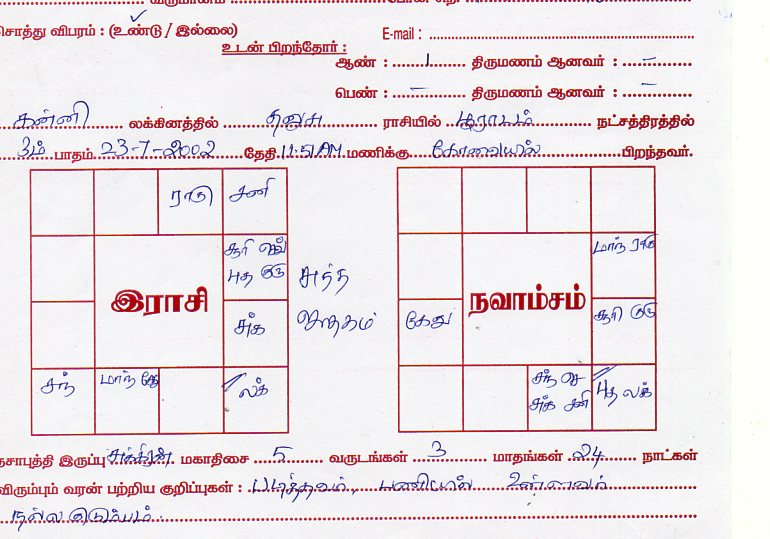 சொத்து விபரம் : (உண்டு / இல்லை) E-mail :
உடன் பிறந்தோர் :
ஆண் : 1 திருமணம் ஆனவர் : –
பெண் : – திருமணம் ஆனவர் : –
கன்னி லக்கினத்தில் தனுசு ராசியில் பூராடம் நட்சத்திரத்தில்
3ம் பாதம் 23-7-2002 தேதி 11.51AM மணிக்கு கோவையில் பிறந்தவர்.
ராகு சனி
சூரி செவ் புத குரு
சுக்
சந் மாந் கேது லக்
இராசி
சுத்த ஜாதகம்
மாந் ராகு
கேது சூரி குரு
சந் செ சுக் சனி புத லக்
நவாம்சம்
சுக்கிரன் மகாதிசை 5 வருடங்கள் 3 மாதங்கள் 24 நாட்கள்
விரும்பும் வரன் பற்றிய குறிப்புகள் : படித்தவர், பணியில் உள்ளவர்
நல்ல குடும்பம்.